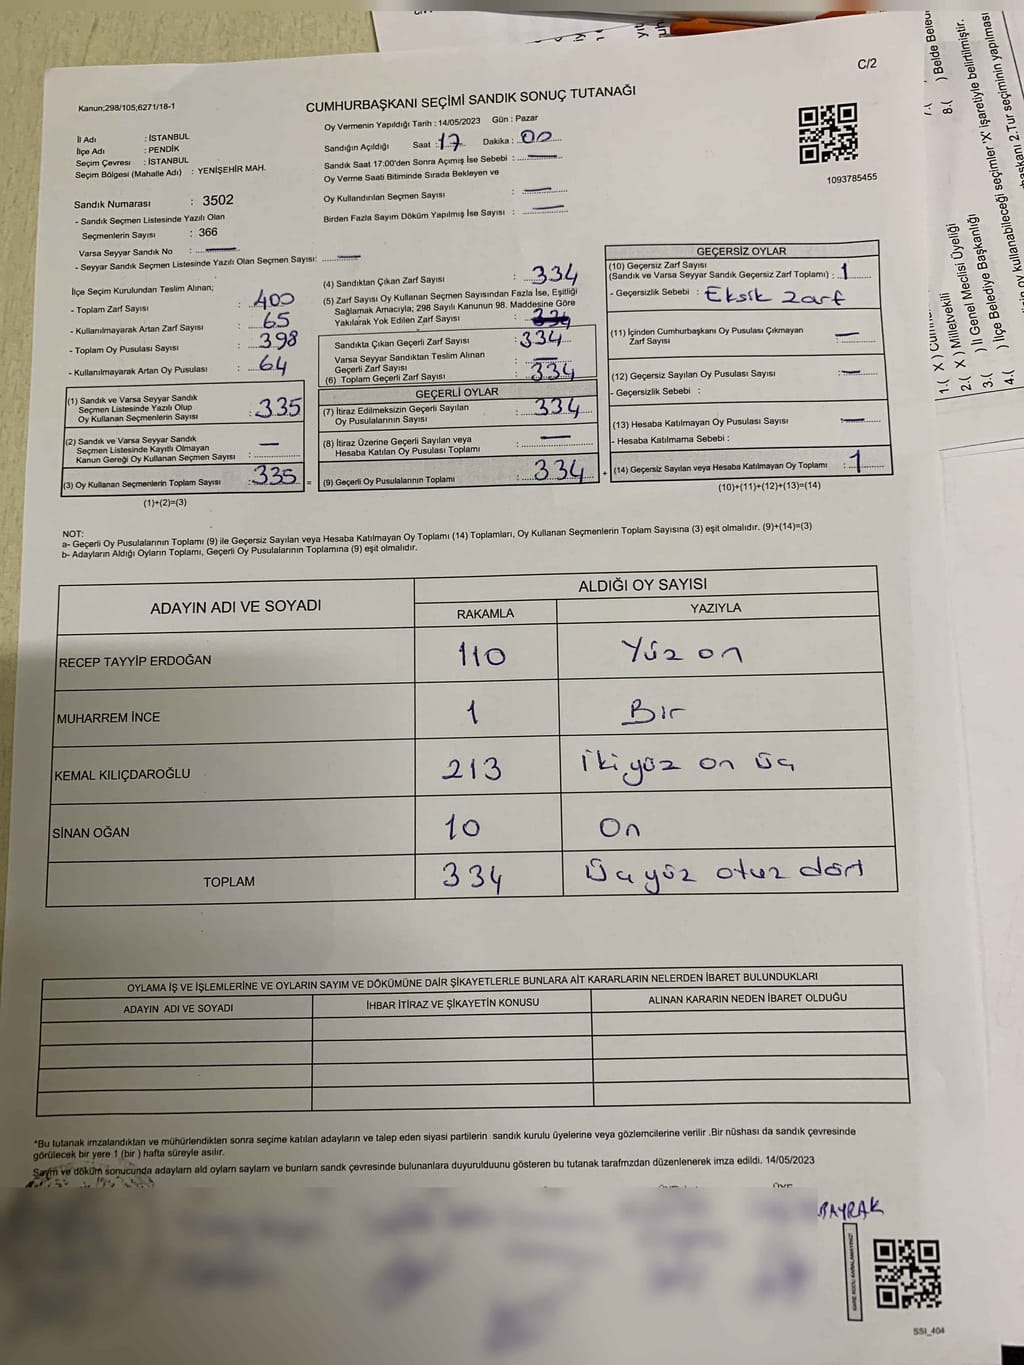 C/2
Kanun;298/105;6271/18-1
CUMHURBAŞKANI SEÇİMİ SANDIK SONUÇ TUTANAĞI
İl Adı : İSTANBUL
İlçe Adı : PENDİK
Seçim Çevresi : İSTANBUL
Seçim Bölgesi (Mahalle Adı) : YENİŞEHİR MAH.
Oy Vermenin Yapıldığı Tarih : 14/05/2023 Gün : Pazar
Sandığın Açıldığı Saat : 17 Dakika : 00
Sandık Saat 17:00'den Sonra Açımış İse Sebebi : —
Oy Verme Saati Bitiminde Sırada Bekleyen ve
Oy Kullandırılan Seçmen Sayısı : —
Birden Fazla Sayım Döküm Yapılmış İse Sayısı : —
1093785455
Sandık Numarası : 3502
- Sandık Seçmen Listesinde Yazılı Olan
Seçmenlerin Sayısı : 366
Varsa Seyyar Sandık No : —
- Seyyar Sandık Seçmen Listesinde Yazılı Olan Seçmen Sayısı: —
İlçe Seçim Kurulundan Teslim Alınan;
- Toplam Zarf Sayısı : 400
- Kullanılmayarak Artan Zarf Sayısı : 65
- Toplam Oy Pusulası Sayısı : 398
- Kullanılmayarak Artan Oy Pusulası : 64
(1) Sandık ve Varsa Seyyar Sandık
Seçmen Listesinde Yazılı Olup
Oy Kullanan Seçmenlerin Sayısı : 335
(2) Sandık ve Varsa Seyyar Sandık
Seçmen Listesinde Kayıtlı Olmayan
Kanun Gereği Oy Kullanan Seçmen Sayısı : —
(3) Oy Kullanan Seçmenlerin Toplam Sayısı : 335 =
(1)+(2)=(3)
(4) Sandıktan Çıkan Zarf Sayısı : 334
(5) Zarf Sayısı Oy Kullanan Seçmen Sayısından Fazla İse, Eşitliği
Sağlamak Amacıyla; 298 Sayılı Kanunun 98. Maddesine Göre
Yakılarak Yok Edilen Zarf Sayısı :
Sandıkta Çıkan Geçerli Zarf Sayısı : 334
Varsa Seyyar Sandıktan Teslim Alınan
Geçerli Zarf Sayısı : —
(6) Toplam Geçerli Zarf Sayısı : 334
GEÇERLİ OYLAR
(7) İtiraz Edilmeksizin Geçerli Sayılan
Oy Pusulalarının Sayısı : 334
(8) İtiraz Üzerine Geçerli Sayılan veya
Hesaba Katılan Oy Pusulası Toplamı : —
(9) Geçerli Oy Pusulalarının Toplamı : 334 +
GEÇERSİZ OYLAR
(10) Geçersiz Zarf Sayısı
(Sandık ve Varsa Seyyar Sandık Geçersiz Zarf Toplamı) : 1
- Geçersizlik Sebebi : Eksik zarf
(11) İçinden Cumhurbaşkanı Oy Pusulası Çıkmayan
Zarf Sayısı : —
(12) Geçersiz Sayılan Oy Pusulası Sayısı : —
- Geçersizlik Sebebi :
(13) Hesaba Katılmayan Oy Pusulası Sayısı : —
- Hesaba Katılmama Sebebi :
(14) Geçersiz Sayılan veya Hesaba Katılmayan Oy Toplamı : 1
(10)+(11)+(12)+(13)=(14)
NOT:
a- Geçerli Oy Pusulalarının Toplamı (9) ile Geçersiz Sayılan veya Hesaba Katılmayan Oy Toplamı (14) Toplamları, Oy Kullanan Seçmenlerin Toplam Sayısına (3) eşit olmalıdır. (9)+(14)=(3)
b- Adayların Aldığı Oyların Toplamı, Geçerli Oy Pusulalarının Toplamına (9) eşit olmalıdır.
ADAYIN ADI VE SOYADI
ALDIĞI OY SAYISI
RAKAMLA YAZIYLA
RECEP TAYYİP ERDOĞAN 110 Yüz on
MUHARREM İNCE 1 Bir
KEMAL KILIÇDAROĞLU 213 İkiyüz on üç
SİNAN OĞAN 10 On
TOPLAM 334 Üçyüz otuz dört
OYLAMA İŞ VE İŞLEMLERİNE VE OYLARIN SAYIM VE DÖKÜMÜNE DAİR ŞİKAYETLERLE BUNLARA AİT KARARLARIN NELERDEN İBARET BULUNDUKLARI
ADAYIN ADI VE SOYADI İHBAR İTİRAZ VE ŞİKAYETİN KONUSU ALINAN KARARIN NEDEN İBARET OLDUĞU
*Bu tutanak imzalandıktan ve mühürlendikten sonra seçime katılan adayların ve talep eden siyasi partilerin sandık kurulu üyelerine veya gözlemcilerine verilir .Bir nüshası da sandık çevresinde
görülecek bir yere 1 (bir ) hafta süreyle asılır.
Sayım ve döküm sonucunda adaylarn ald oylarn saylarn ve bunlarn sandk çevresinde bulunanlara duyurulduunu gösteren bu tutanak tarafmzdan düzenlenerek imza edildi. 14/05/2023
BAYRAK
KARE KODU KARALAMAYINIZ!
SSI_404
8.( ) Belde Beled
1.( X ) Cumhu
2.( X ) Milletvekili
3.( ) İl Genel Meclisi Üyeliği
4.( ) İlçe Belediye Başkanlığı
seçimler 'X' işaretiyle belirtilmiştir.
başkanı 2.Tur seçiminin yapılması
oy kullanabileceği